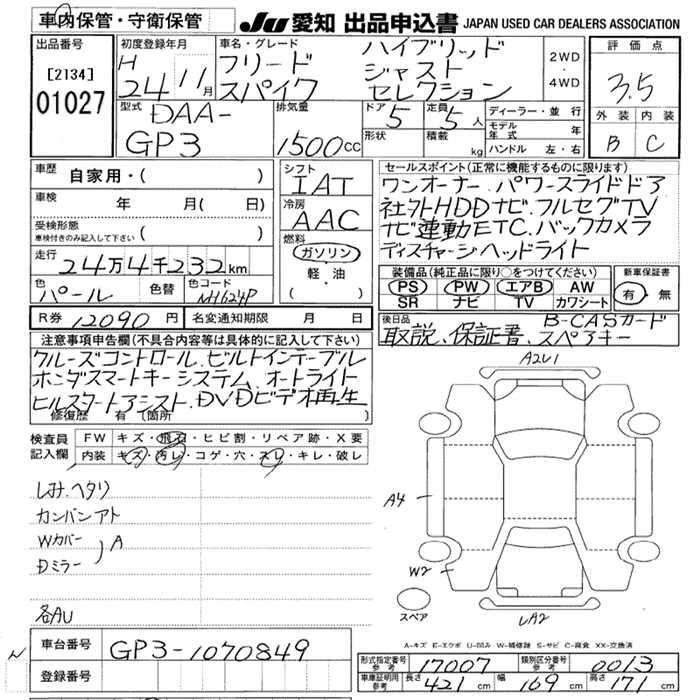 車内保管・守衛保管
JU 愛知 出品申込書 JAPAN USED CAR DEALERS ASSOCIATION
出品番号 [2134] 01027
初度登録年月 H 24 11月
車名・グレード フリード スパイク ハイブリッド ジャスト セレクション
2WD・4WD
評価点 3.5
外装 内装
B C
型式 DAA-GP3
排気量 1500CC
ドア 5 定員 5人
形状 積載 kg
ディーラー・並行
モデル年式 年
ハンドル 左・右
車歴 自家用・( )
車検 年 月( 日)
受検形態 車検付きのみ記入して下さい ( )
走行 24万4千232km
色 パール 色替 色コード NH624P
シフト IAT
冷房 AAC
燃料 ガソリン
軽・油
( )
セールスポイント(正常に機能するものに限ります)
ワンオーナー.パワースライドドア
社外HDDナビ.フルセグTV
ナビ連動ETC.バックカメラ
ディスチャージヘッドライト
装備品(純正品に限り○をつけてください)
PS PW エアB AW
SR ナビ TV カワシート
新車保証書 有・無
R券 12090円 名変通知期限 月 日
後日品 B-CASカード
取説、保証書、スペアキー
注意事項申告欄(不具合内容等は具体的に記入して下さい)
クルーズコントロール.ビルトインテーブル
ホンダスマートキーシステム.オートライト
ヒルスタートアシスト.DVDビデオ再生
修復歴 有(箇所 )
検査員記入欄
FW キズ・飛石・ヒビ割・リペア跡・X要
内装 キズ・汚レ・コゲ・穴・スレ・キレ・破レ
シミ.ヘタリ
カンバンアト
Wカバー
Dミラー A
各AU
A2U1
A4
W2
スペア
LA2
A-キズ E-エクボ U-凹み W-補修跡 S-サビ C-腐食 XX-交換済
車台番号 GP3-1070849
登録番号
形式指定番号 参考 17007 類別区分番号 参考 0013
車庫証明用 参考 長さ 421cm 幅 169cm 高さ 171cm